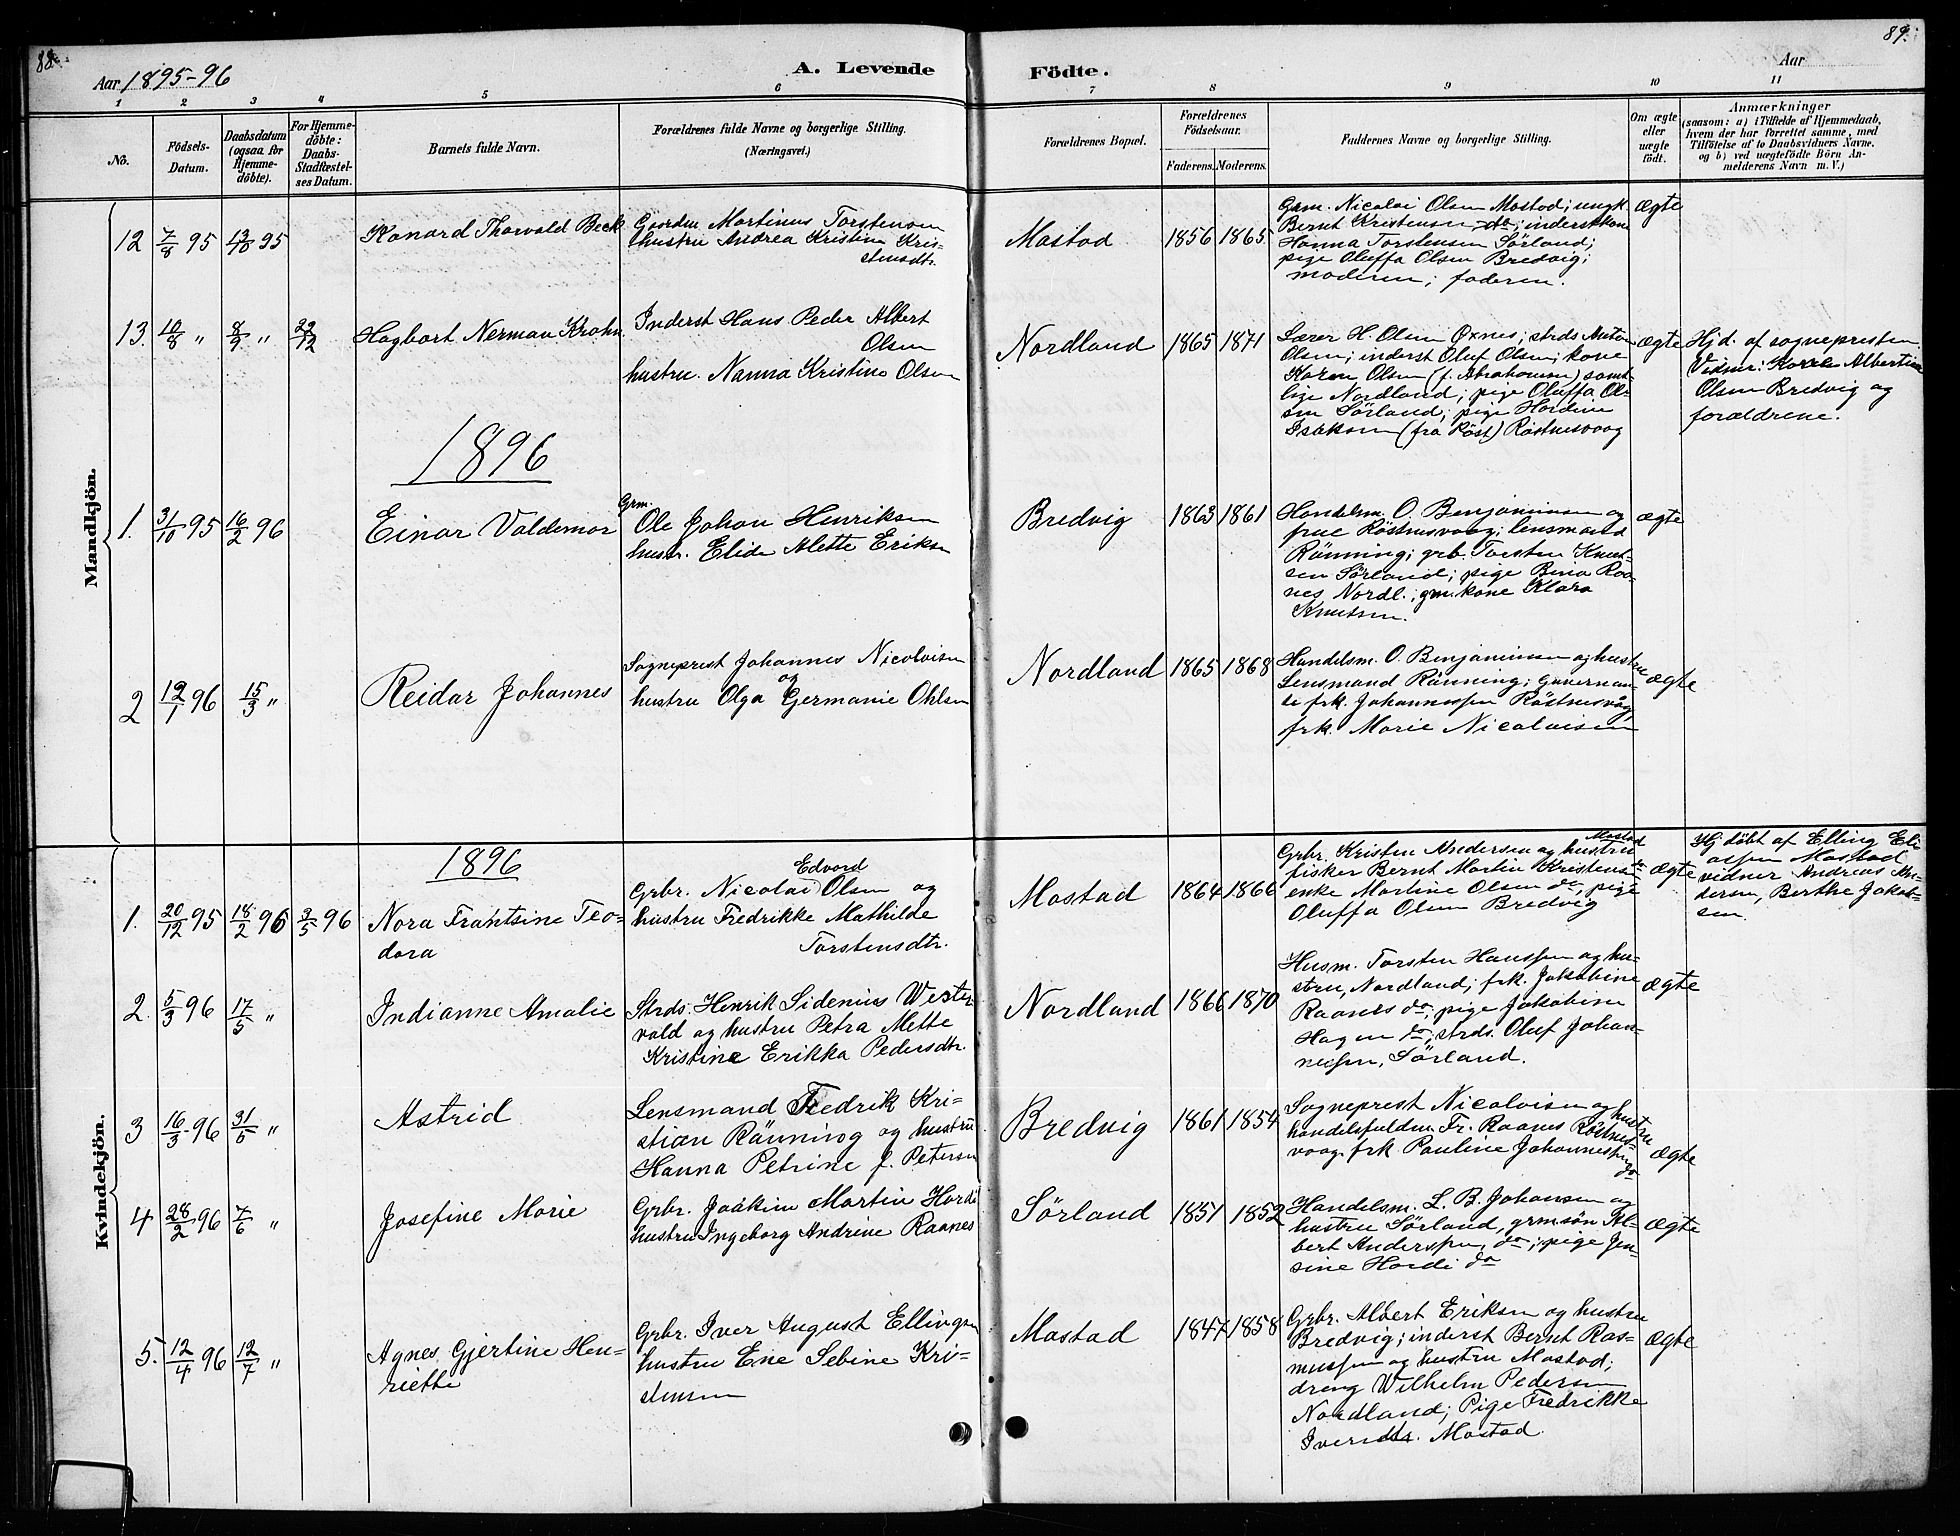 88.
89.
Aar 1895-96
A. Levende
Födte.
Aar
1 2 3 4 5 6 7 8 9 10 11
No.
Födsels-
Datum.
Daabsdatum
(ogsaa for
Hjemme-
döbte).
For Hjemme-
döbte:
Daabs-
Stadfæstel-
ses Datum.
Barnets fulde Navn.
Forældrenes fulde Navne og borgerlige Stilling.
(Næringsvei.)
Forældrenes Bopæl.
Forældrenes
Födselsaar.
Faderens.
Moderens.
Faddernes Navne og borgerlige Stilling.
Om ægte
eller
uægte
födt.
Anmærkninger
(saasom: a) i Tilfælde af Hjemmedaab,
hvem der har forrettet samme, med
Tilföielse af to Daabsvidners Navne,
og b) ved uægtefödte Börn An-
melderens Navn m. V.)
Mandkjön.
12 7/8 95 13/10 95
Konard Thorvald Beck
Gaarden Martinus Torstensen
hustru Andrea Kristine Kris-
tensdtr.
Mostad
1856 1865
Grm. Nicolai Olsen Mostad; ungk.
Bernt Kristensen do; inderstkone
Hanna Torstensen Sörland;
pige Oluffa Olsen Bredvig;
moderen; faderen.
ægte
13. 10/8 " 8/9 " 22/12
Hagbart Nerman Krohn
Inderst Hans Peder Albert
Olsen
hustru Nanna Kristine Olsen
Nordland
1865 1871
Lærer H. Olsen Øxnes; strds Anton
Olsen; inderst Oluf Olsen; kone
Karen Olsen (f. Abrahamsen) samt-
lige Nordland; pige Oluffa Ol-
sen Sörland; pige Hardine
Isaksen (fra Röst) Röstnesvaag
ægte
Hjd. af sognepresten.
Vidner: Karele Albertine
Olsen Bredvig og
forældrene.
1896
1. 31/10 95 16/2 96
Einar Valdemar
Grm.
Ole Johan Henriksen
hustr. Elide Mette Eriksen
Bredvig
1863 1861
Handelsm. O. Benjaminsen og
frue Röstnesvaag; lensmand
Rönning; grb. Torsten Knut-
sen Sörland; pige Bina Raa-
nes Nordl.; gm.kone Klara
Knutsen.
ægte
2 12/1 96 15/3 "
Reidar Johannes
Sogneprest Johannes Nicolaisen
og
hustru Olga Germanie Ohlsen
Nordland
1865 1868
Handelsm. O. Benjaminsen og hustru
Lensmand Rönning; guvernan-
te frk. Johannessen Röstnesvåg,
frk. Marie Nicolaisen
ægte
Kvindekjön.
1896
1. 20/12 95 18/2 96 3/5 96
Nora Frantsine Teo-
dora
Edvard
Grbr. Nicolai Olsen og
hustru Fredrikke Mathilde
Torstensdtr.
Mostad
1864 1866
Mostad
Grbr. Kristen Andersen og hustru
fisker Bernt Martin Kristensen do
enke Martine Olsen do, pige
Oluffa Olsen Bredvig
ægte
Hj döbt af Elling Eli-
assen Mostad
vidner Andreas An-
dersen, Berthe Jakob-
sen.
2. 5/3 96 17/5 "
Indianne Amalie
Strds. Henrik Sidenius Wester
vald og hustru Petra Mette
Kristine Erikka Pedersdtr.
Nordland
1866 1870
Husm. Torsten Hanssen og hu-
stru, Nordland; frk. Jakobine
Raanes do; pige Jakobine
Hagen do, strds. Oluf Johan-
nessen, Sörland.
ægte
3 16/3 96 31/5 "
Astrid
Lensmand Fredrik Kri-
stian Rönning og hustru
Hanna Petrine f. Petersen
Bredvig
1861 1854
Sogneprest Nicolaisen og hustru
handelsfuldm. Fr. Raanes Röstnes-
voag, frk. Pauline Johannessen
do
ægte
4 28/2 96 7/6 "
Josefine Marie
Grbr. Joakim Martin Hardi
hustru Ingeborg Andrine Raanes
Sörland
1851 1852
Handelsm. L. B. Johansen og
hustru Sörland, grmsön Al-
bert Anderssen, do; pige Jen-
sine Hardi do
ægte
5. 12/4 96 12/7 "
Agnes Gjertine Hen-
riette
Grbr. Iver August Ellingsen
hustru Ene Sebine Kri-
stensen
Mostad
1847 1858
Grbr. Albert Eriksen og hustru
Bredvig; inderst Bernt Ras-
mussen og hustru Mostad;
dreng Wilhelm Pedersen
Nordland; Pige Fredrikke
Iversdtr. Mostad.
ægte